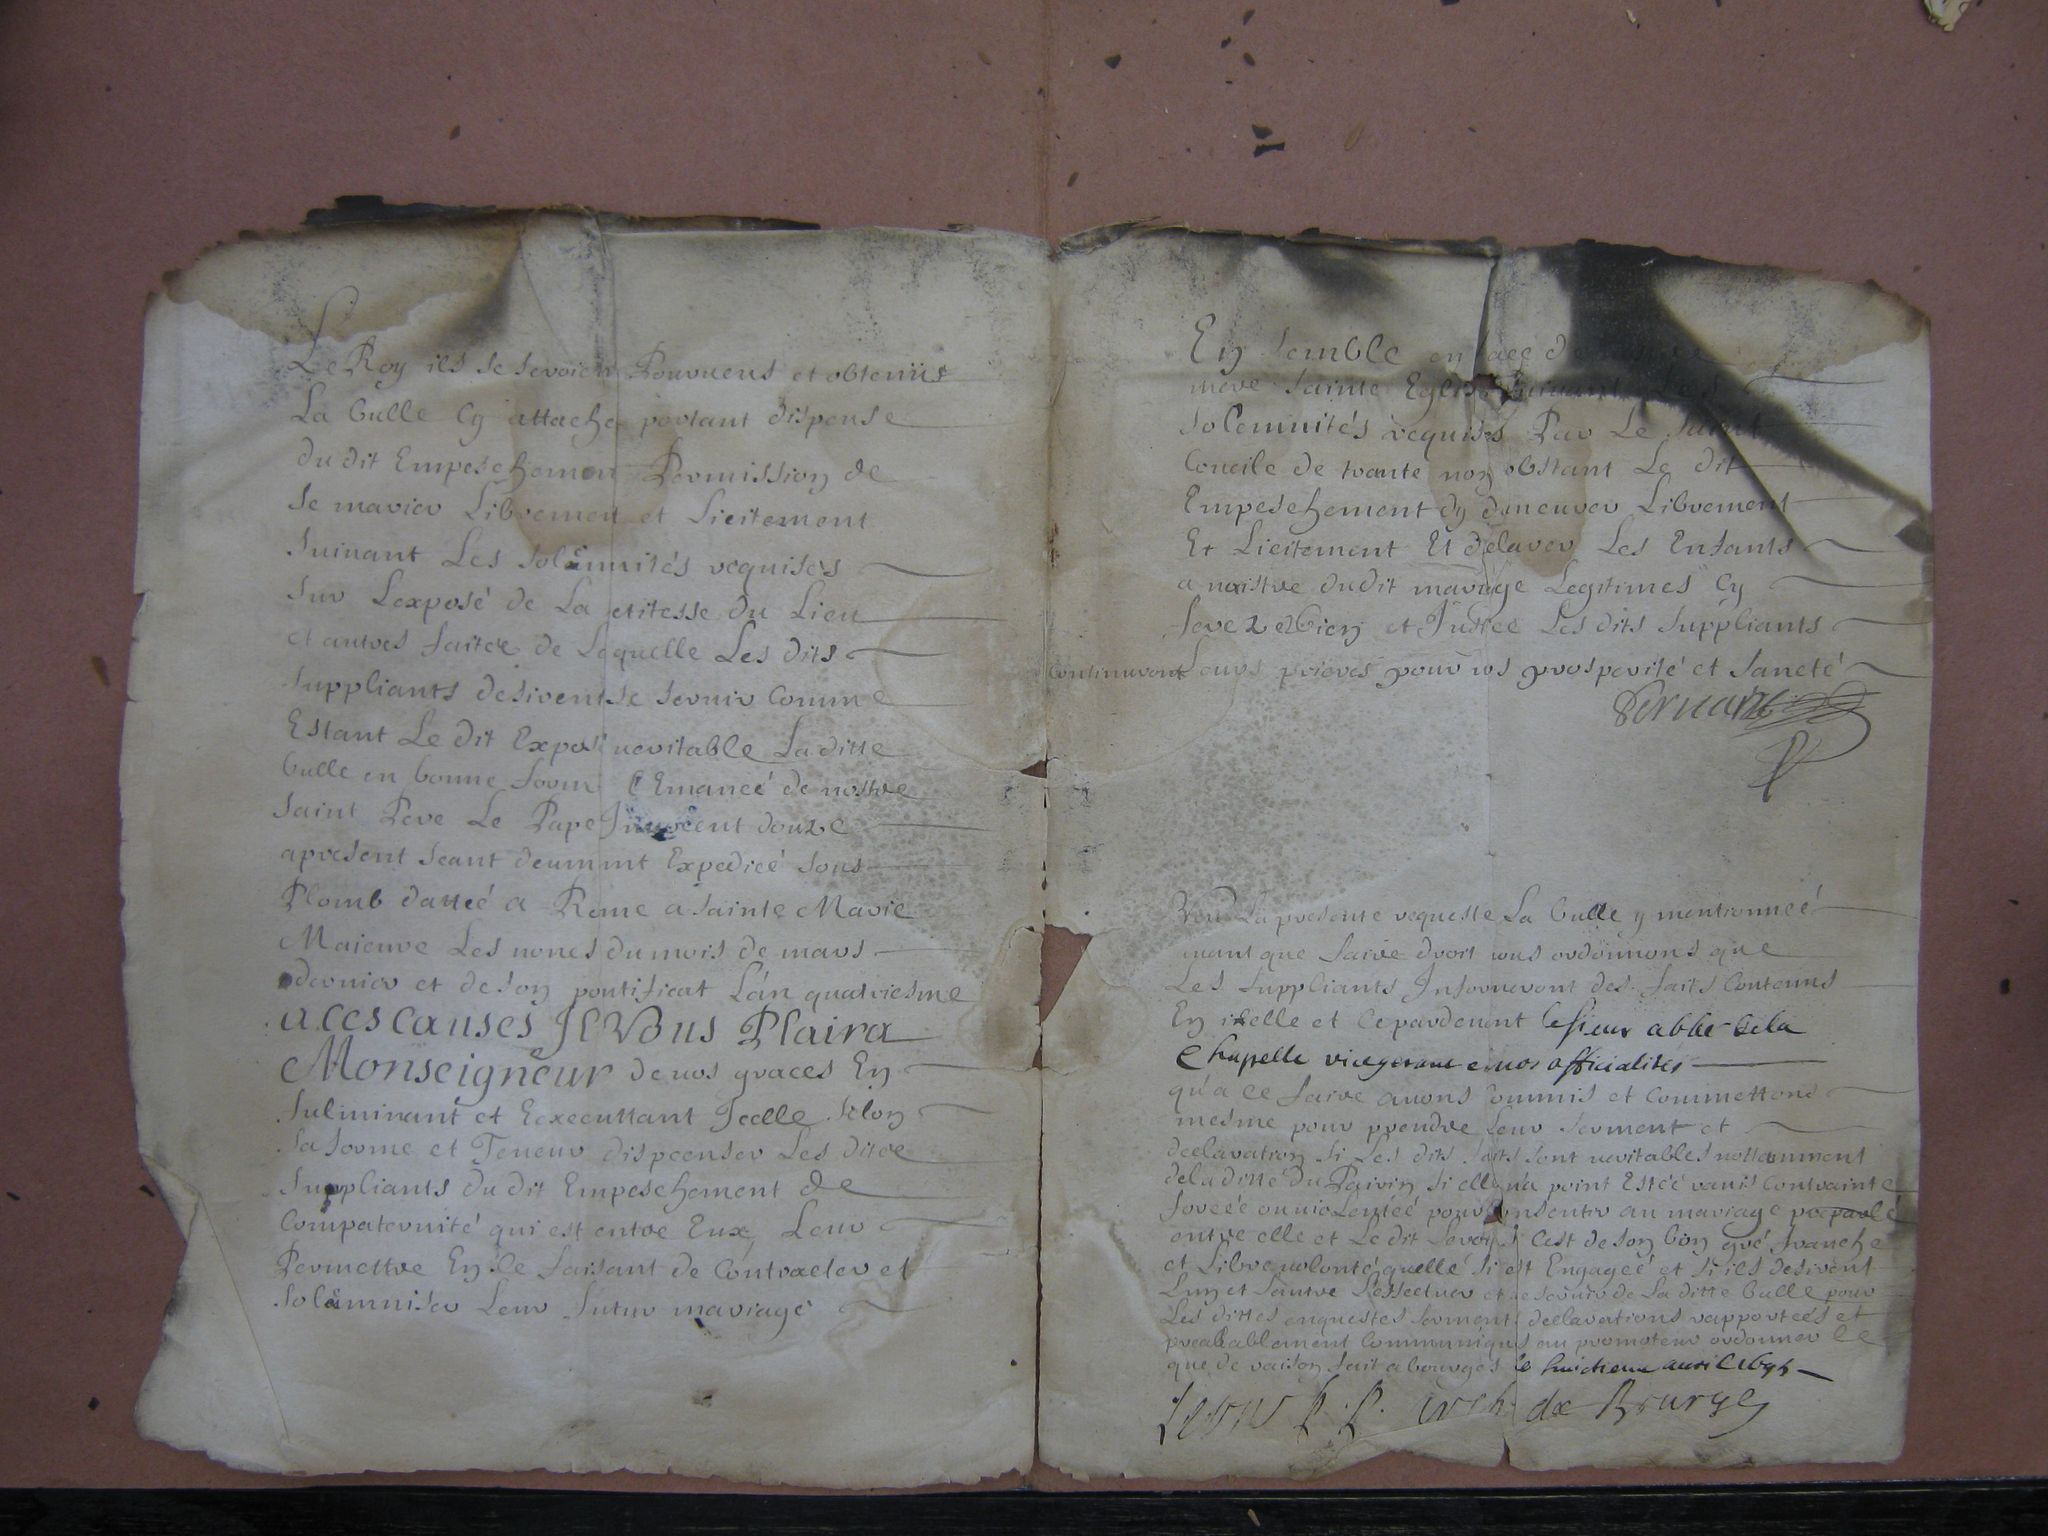 Le Roy ils se seroien Pourueus et obtenüe
La bulle Cy attache portant dispense
du dit Empeschemen Permission de
se marier Librement et Licitement
suiuant Les solemnités requises
sur Lexposé de La etitesse du Lieu
et autres faites de Laquelle Les dits
suppliants desirent se seruir Comme
Estant Le dit Expos ueritable Laditte
bulle en bonne form Emaneé de nostre
saint Pere Le Pape Innocent douze
apresent seant deument Expedieé sous
Plomb datteé a Rome a sainte Marie
Maieure Les nones du mois de mars
dernier et de son pontificat L'an quatriesme
a ces causes Il Vous Plaira
Monseigneur de uos graces En
fulminant et Executtant Icelle selon
sa forme et Teneur dispcenser Les dits
suppliants du dit Empeschement de
Compaternité qui est entre Eux Leur
Permettre En ce faisant de Contracter et
solemniser Leur futur mariage
En semble en face de
mere sainte Eglise suiuant Les
solemnités requises Par Le saint
Concile de trante non obstant Le dit
Empeschement dy demeurer Librement
Et Licitement Et declarer Les Enfants
a naistre dudit mariage Legitimes Cy
ferez Bien et Justice Les dits suppliants
Continuront Leurs prieres pour uos prosperité et sancté
Veu La presente requeste La bulle y mentionneé
auant que faire droit nous ordonnons que
Les suppliants Informeront des faits Contenus
En icelle et Cepardeuant le sieur abbé de la
Chapelle vicegerant en nos officialités
qu'a ce faire auons Commis et Commettons
mesme pour prendre Leur serment et
declaration si Les dits faits sont ueritables nottamment
de la ditte Du Pairin si elle n'a point Esteé rauie Contrainte
forceé ou uiolenteé pour Consentir au mariage proparlé
entre elle et Le dit si Cest de son bon gré franche
et Libre uolonté quelle si est Engageé et si ils desirent
Lun et Lautre L'effectuer et se seruir de La ditte bulle pour
Les dittes enquestes serment declarations rapporteés et
prealablement Communiqués au promoteur ordonner Ce
que de raison fait a bourges le huictieme auril
P. P. arch. de Bourges